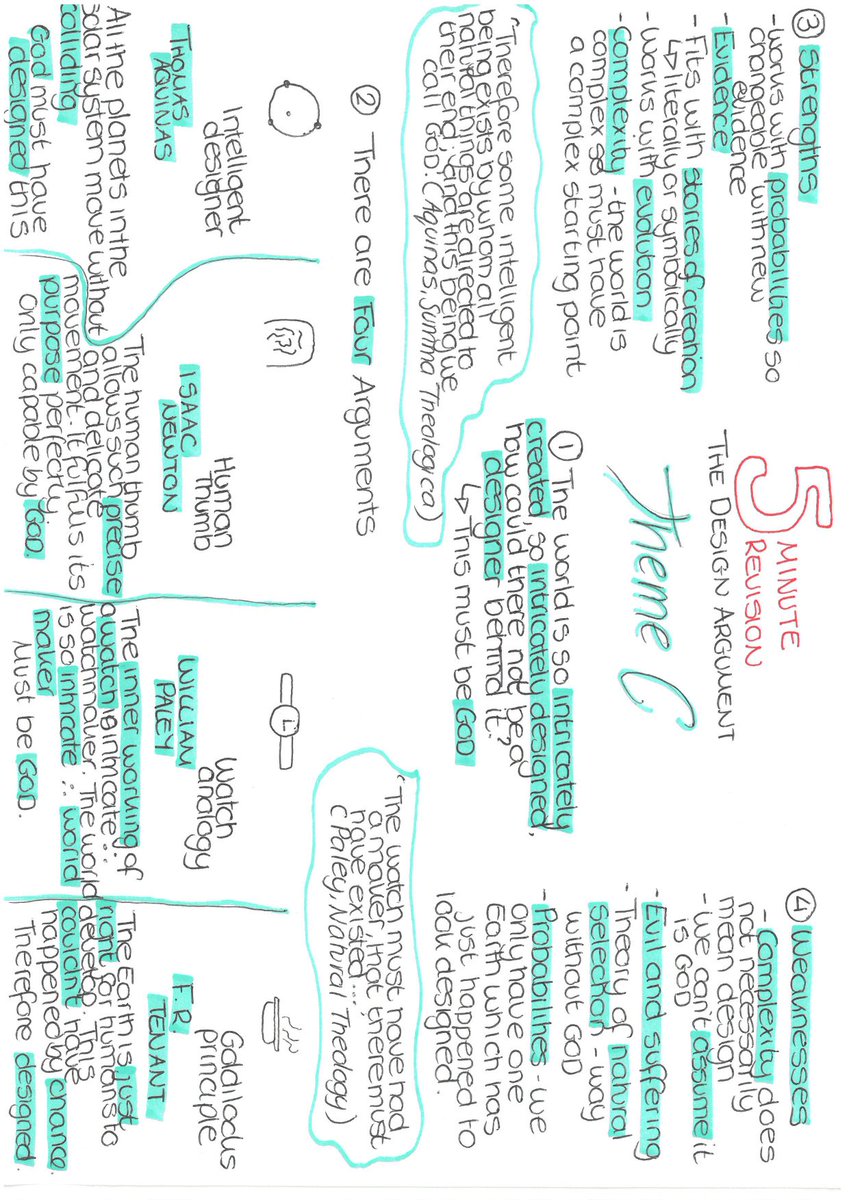 5 MINUTE
REVISION
THE DESIGN ARGUMENT
Theme C
① The world is so intricately
created, so intricately designed,
how could there not be a
designer behind it?
↳ This must be GOD
② There are Four Arguments
Intelligent
designer
THOMAS
AQUINAS
All the planets in the
solar system move without
colliding
God must have
designed this
Human
Thumb
ISAAC
NEWTON
The human thumb
allows such precise
and delicate
movement. It fulfils its
purpose perfectly,
only capable by GOD.
Watch
analogy
WILLIAM
PALEY
The inner working of
a watch is intricate ∴
watchmaker. The world
is so intricate ∴ world
maker
Must be GOD.
Goldilocks
principle
F.R
TENANT
The Earth is just
right for humans to
develop. This
couldn't have
happened by chance.
Therefore designed.
③ Strengths
- works with probabilities so
changeable with new
evidence
- Evidence
- Fits with stories of creation
↳ literally or symbolically
- Works with evolution
- Complexity - the world is
complex so must have
a complex starting point
"Therefore some intelligent
being exists by whom all
natural things are directed to
their end; and this being we
call GOD. (Aquinas, Summa Theologica)
④ Weaknesses
- Complexity does
not necessarily
mean design
- we can't assume it
is GOD
- Evil and suffering
- Theory of natural
selection - way
without GOD
- Probabilities - we
only have one
Earth which has
just happened to
look designed.
"The watch must have had
a maker, that there must
have existed...
(Paley, Natural Theology)